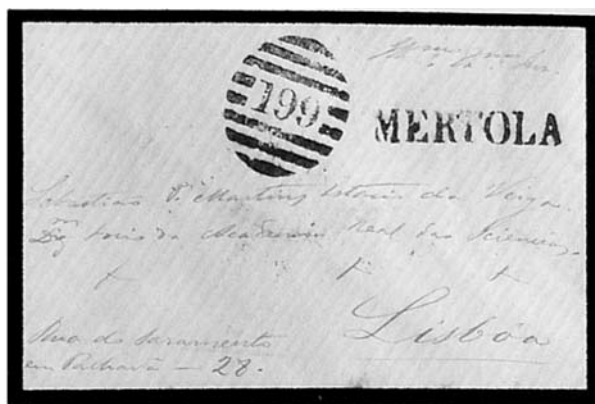 199
MERTOLA
Sebastião P. Martins Estacio da Veiga.
Socio da Academia Real das Sciencias
Lisboa
Rua do Sacramento
em Palhavã — 28.